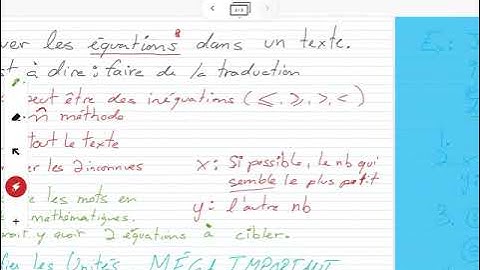 les équations dans un texte.
à dire : faire de la traduction
être des inéquations (≤, ≥, >, <)
méthode
tout le texte
les 2 inconnues
x : Si possible, le nb qui
semble le plus petit
les mots en
y : l'autre nb
mathématiques.
y avoir 2 équations à cibler.
les Unités MÉGA IMPORTANT
1.
2.
3.